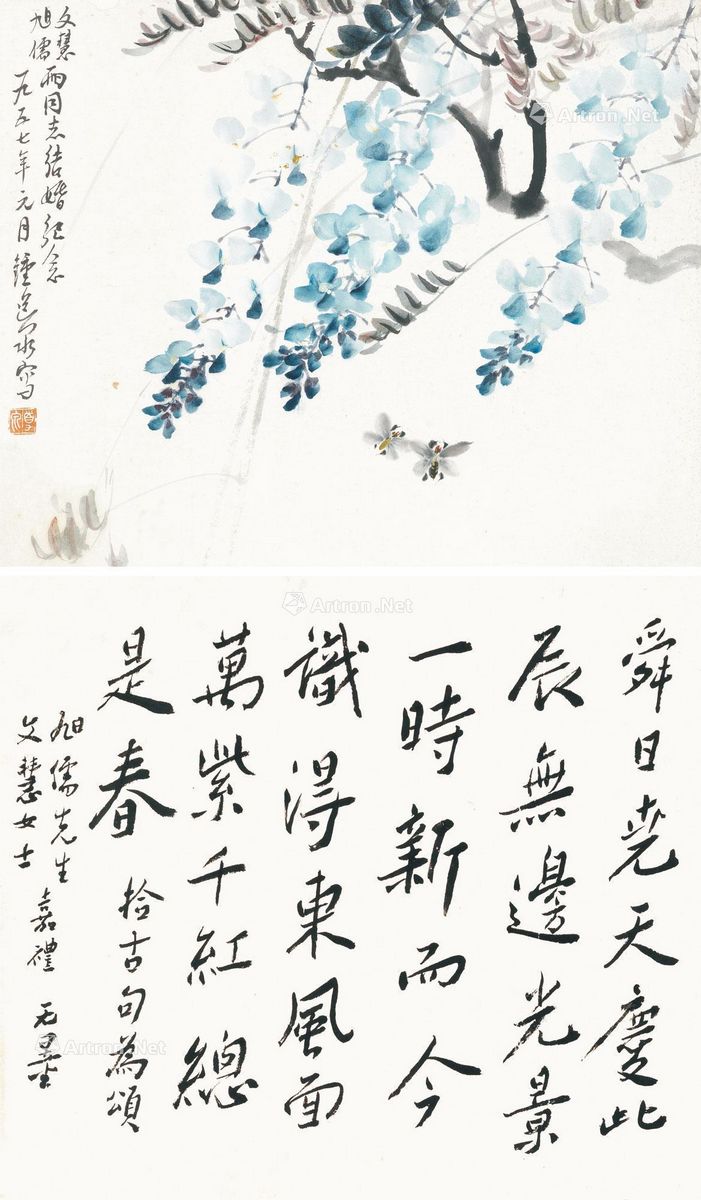 文慧
旭儒兩同志結婚紀念
一九五七年元月鍾
Artron.Net
Artron.Net
舜日堯天慶此
辰無邊光景
一時新而今
識得東風面
萬紫千紅總
是春 拾古句為頌
旭儒先生
文慧女士 嘉禮
Artron.Net